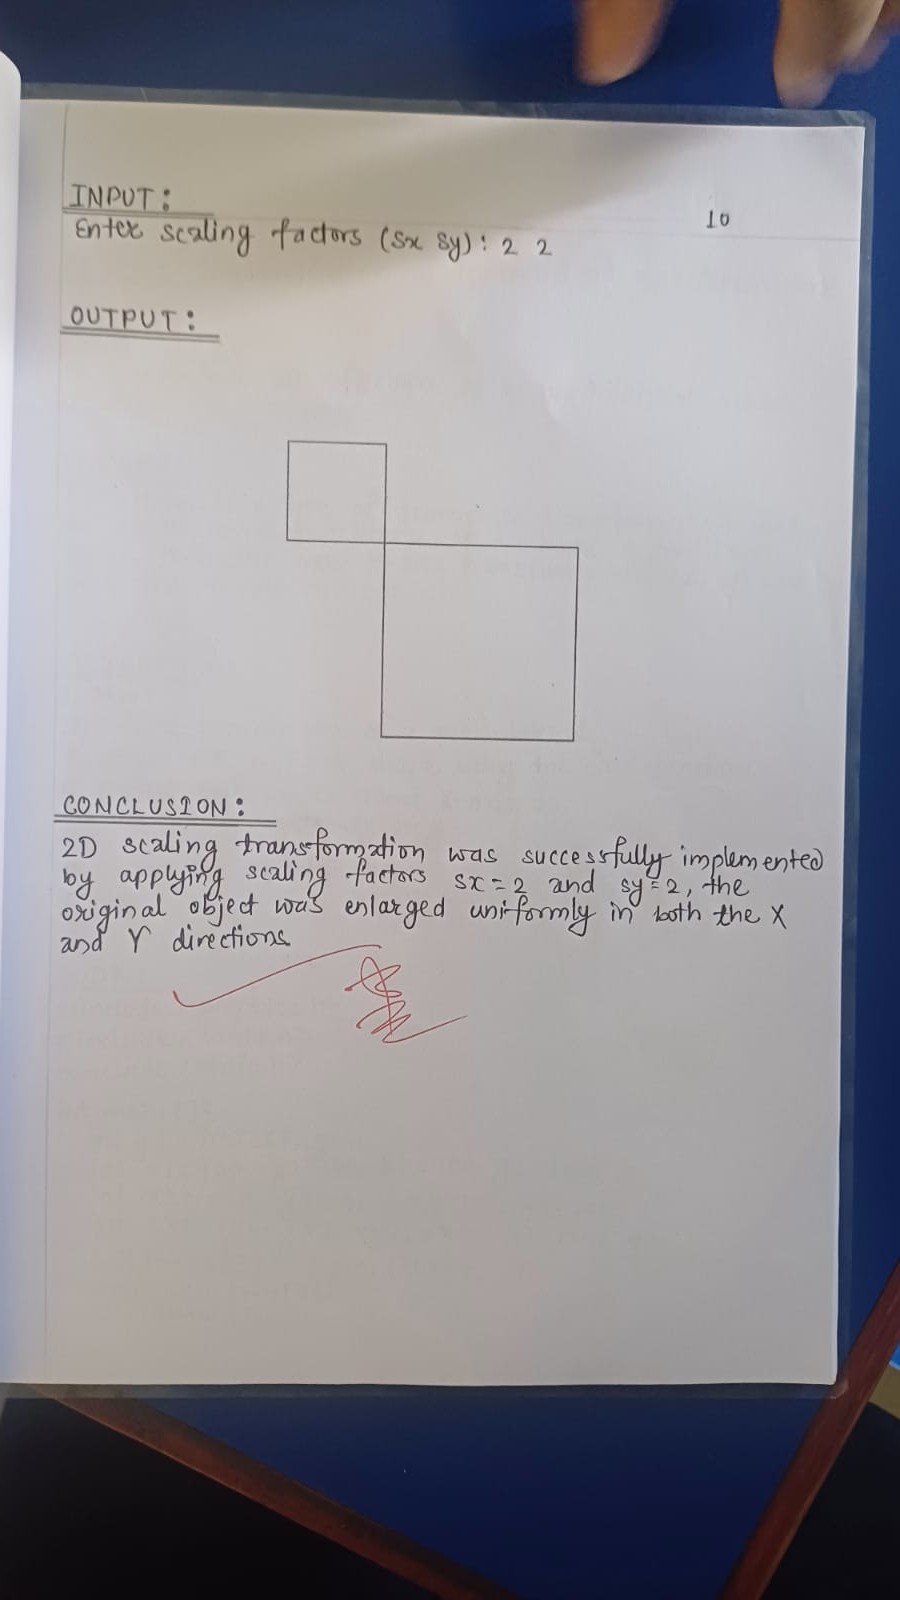 10
INPUT:
Enter scaling factors (Sx Sy): 2 2
OUTPUT:
CONCLUSION:
2D scaling transformation was successfully implemented
by applying scaling factors sx=2 and sy=2, the
original object was enlarged uniformly in both the X
and Y directions